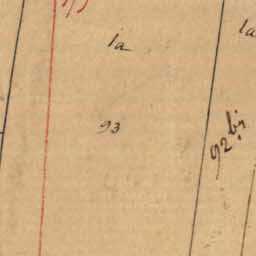 la
la
93
92 bis